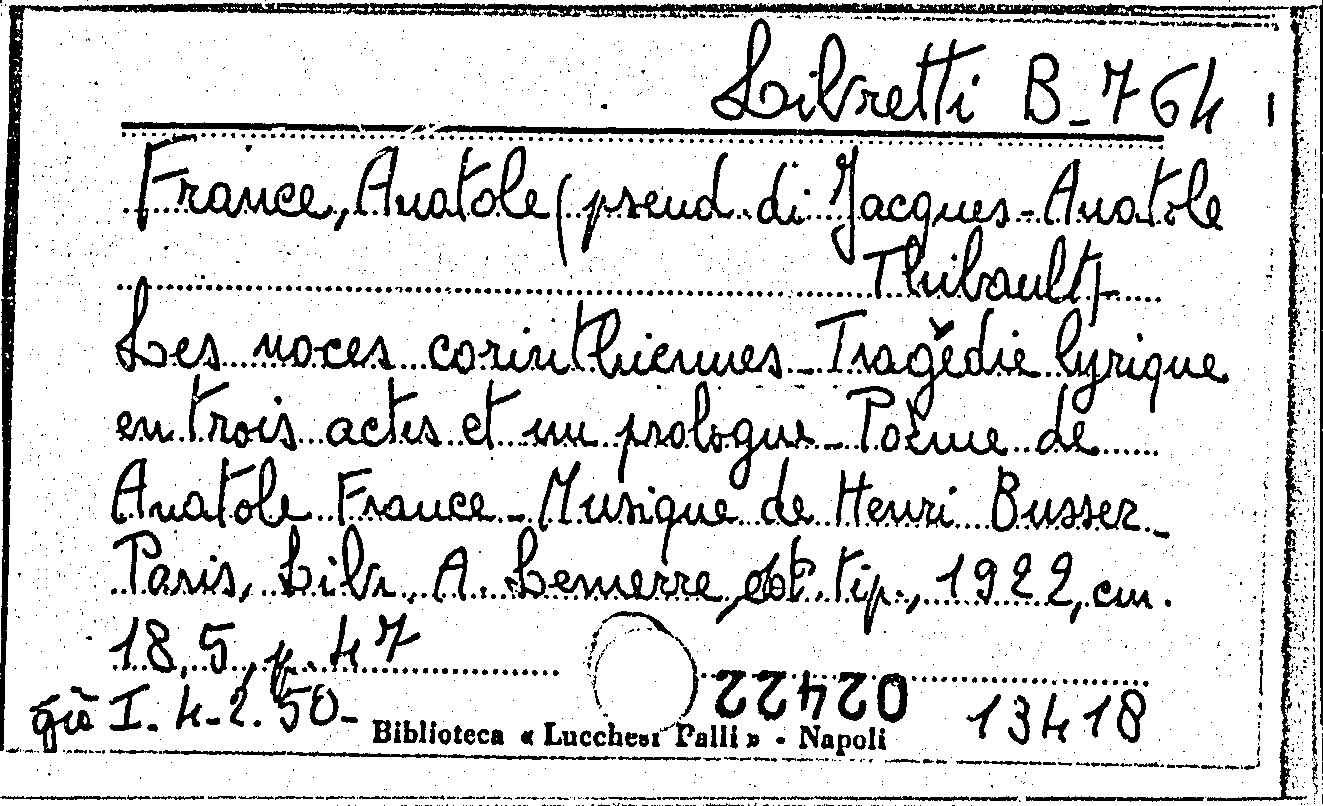 Libretti B-764
France, Anatole (pseud. di Jacques-Anatole
Thibault)
Les noces corinthiennes - Tragédie lyrique
en trois actes et un prologue - Poème de
Anatole France - Musique de Henri Busser -
Paris, Libr. A. Lemerre, tip., 1922, cm.
18,5, p. 47
già I. 4-2. 50-
02422
13418
Biblioteca « Lucchesi Palli » - Napoli